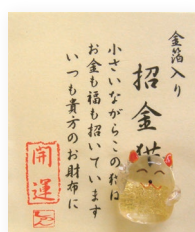 金箔入り
招金猫
小さいながらこの私は
お金も福も招いています
いつも貴方のお財布に
開運